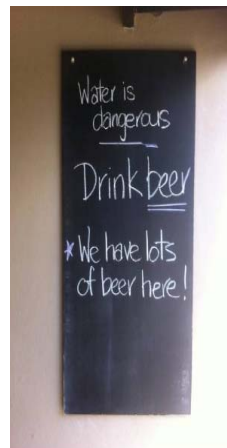 Water is
dangerous
Drink beer
* We have lots
of beer here!